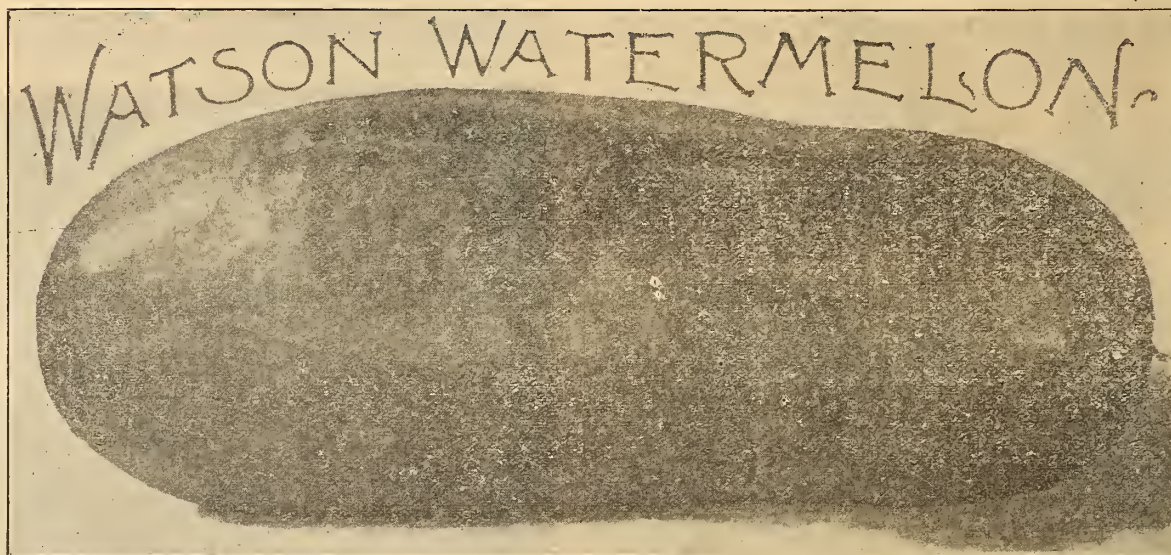 WATSON WATERMELON.